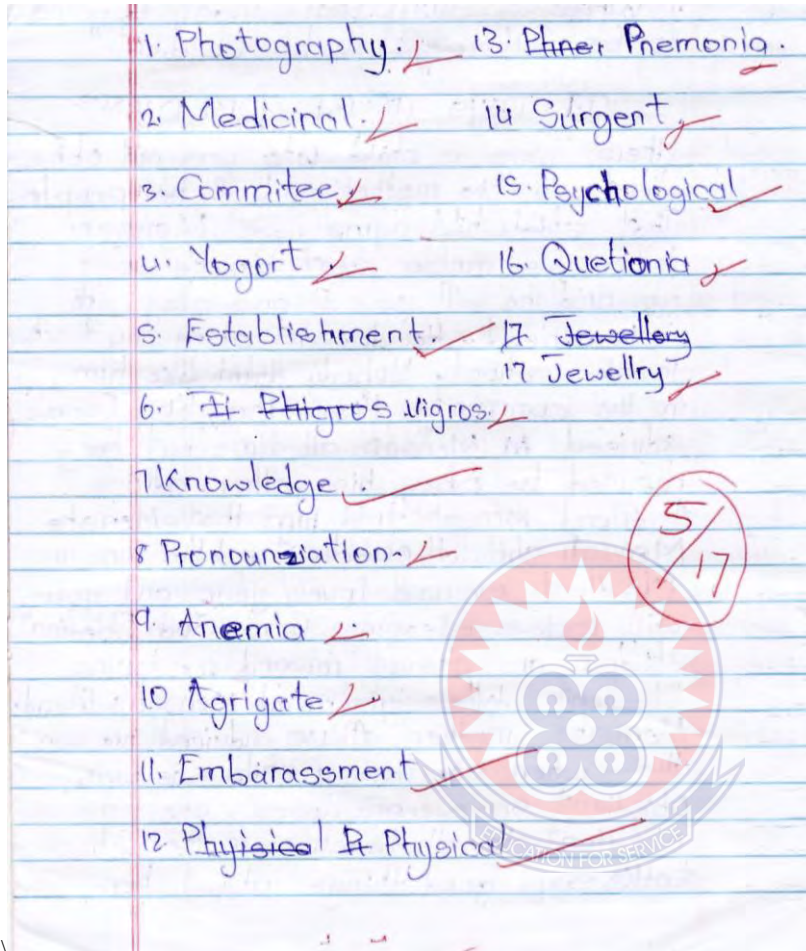 1. Photography.
2. Medicinal.
3. Commitee.
4. Yogort.
5. Establishment
6. It Phigros Vigros.
7. Knowledge.
8 Pronounziation.
9. Anemia
10 Agrigate.
11. Embarassment
12. Phyisical P Physical
13. Phner Pnemonia.
14 Surgent.
15. Psychological
16. Quetionia
17 Jewellery
17. Jewellry
5/17
EDUCATION FOR SERVICE
\